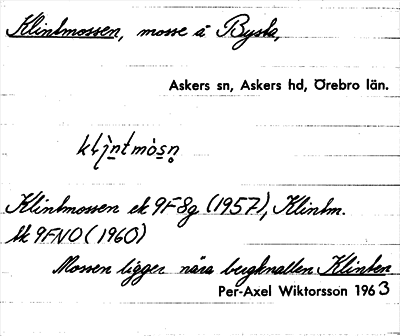 Klintmossen, mosse å Bysta,
Askers sn, Askers hd, Örebro län.
Klintmossen ek 9F8g (1957), Klintm.
bk 9FNO (1960)
Mossen ligger nära bergknallen Klinten
Per-Axel Wiktorsson 1963